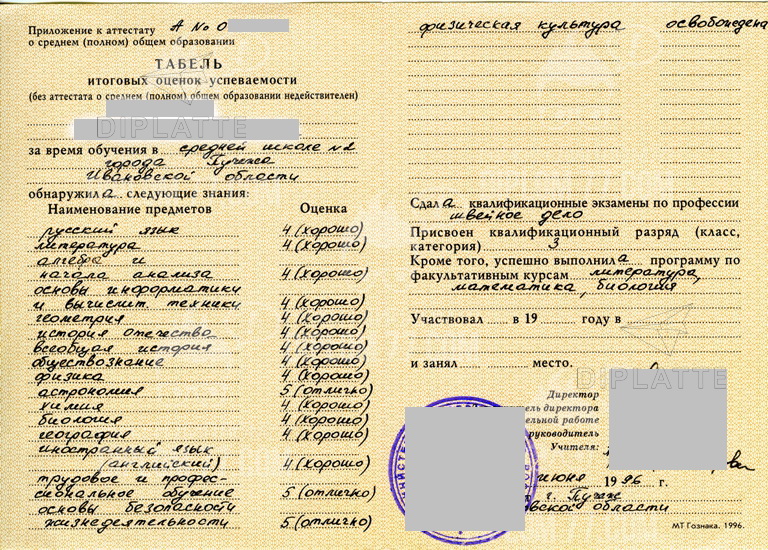 Приложение к аттестату А № 0
о среднем (полном) общем образовании
ТАБЕЛЬ
итоговых оценок успеваемости
(без аттестата о среднем (полном) общем образовании недействителен)
DIPLATTE
за время обучения в средней школе №2
города Пучежа
Ивановской области
обнаружила следующие знания:
Наименование предметов Оценка
русский язык 4 (хорошо)
литература 4 (хорошо)
алгебра и
начала анализа 4 (хорошо)
основы информатики
и вычислит. техники 4 (хорошо)
геометрия 4 (хорошо)
история отечества 4 (хорошо)
всеобщая история 4 (хорошо)
обществознание 4 (хорошо)
физика 4 (хорошо)
астрономия 5 (отлично)
химия 4 (хорошо)
биология 4 (хорошо)
география 4 (хорошо)
иностранный язык
(английский) 4 (хорошо)
трудовое и профес-
сиональное обучение 5 (отлично)
основы безопасности
жизнедеятельности 5 (отлично)
физическая культура освобождена
Сдала квалификационные экзамены по профессии
швейное дело
Присвоен квалификационный разряд (класс,
категория) 3
Кроме того, успешно выполнила программу по
факультативным курсам литература,
математика, биология
Участвовал в 19 году в
и занял место.
DIPLATTE
Директор
ель директора
ельной работе
руководитель
Учителя:
июня 1996 г.
г. Пучеж
вской области
МТ Гознака. 1996.